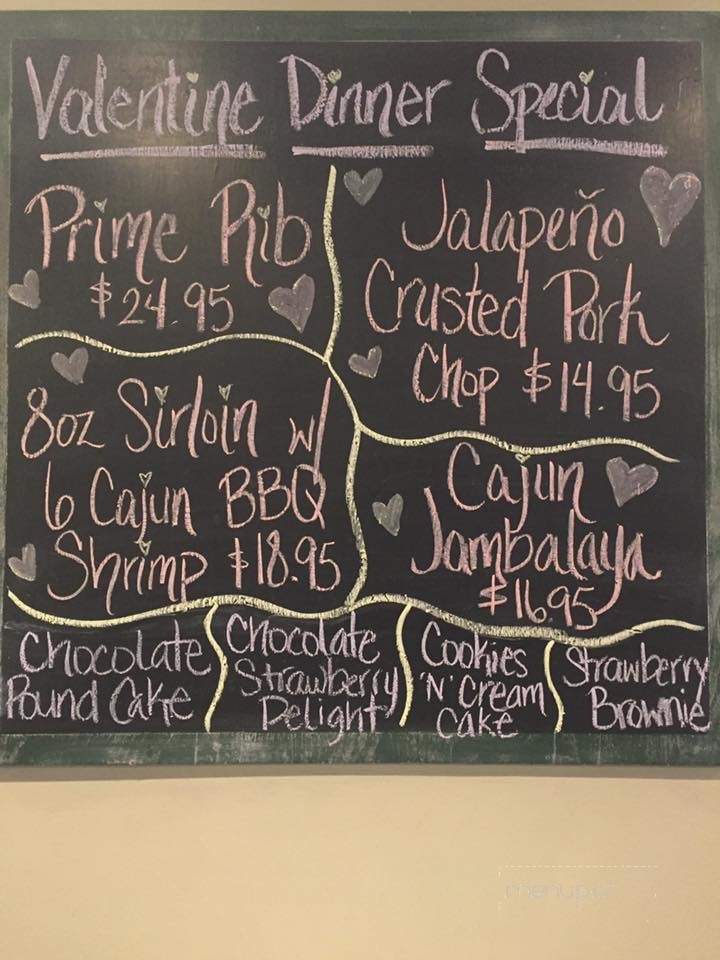 Valentine Dinner Special
Prime Rib
$24.95
Jalapeño
Crusted Pork
Chop $14.95
8oz Sirloin w/
6 Cajun BBQ
Shrimp $18.95
Cajun
Jambalaya
$16.95
Chocolate
Pound Cake
Chocolate
Strawberry
Delight
Cookies
'N' Cream
Cake
Strawberry
Brownie